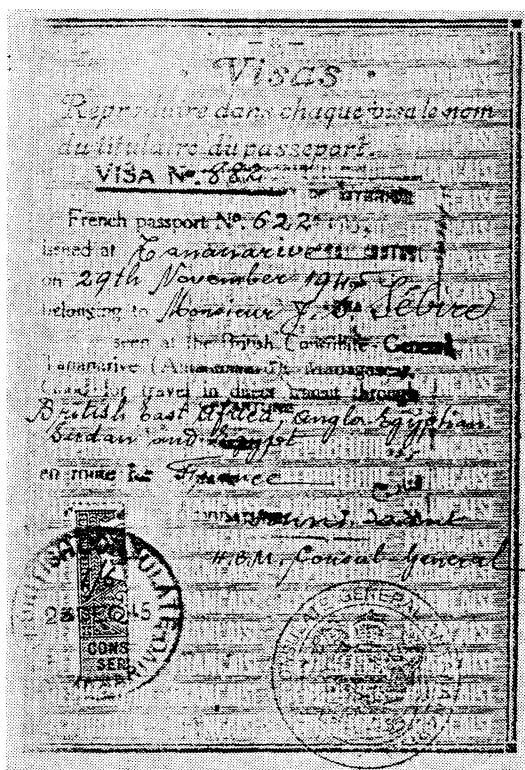 - 8 -
· Visas ·
Reproduire dans chaque visa le nom
du titulaire du passeport.
VISA Nº. 882
French passport Nº. 622
issued at Tananarive
on 29th November 1945
belonging to Monsieur J. Sébire
seen at the British Consulate General
Tananarive Madagascar
Good for travel in direct transit through
British East Africa, Anglo Egyptian
Sudan and Egypt
en route for France
H.B.M. Consul General
BRITISH CONSULATE
DEC 45
CONS
SER
CONSULATE GENERAL